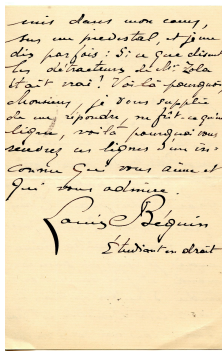 mis dans mon cœur,
sur un piedestal, et je me
dis parfois : Si ce que disent
les détracteurs de Mr Zola
était vrai ! Voilà pourquoi
Monsieur, je vous supplie
de me répondre, ne fût-ce qu'une
ligne, voilà pourquoi vous
ces lignes d'un in-
connu qui vous aime et
qui vous admire.
Louis Béguin
Étudiant en droit